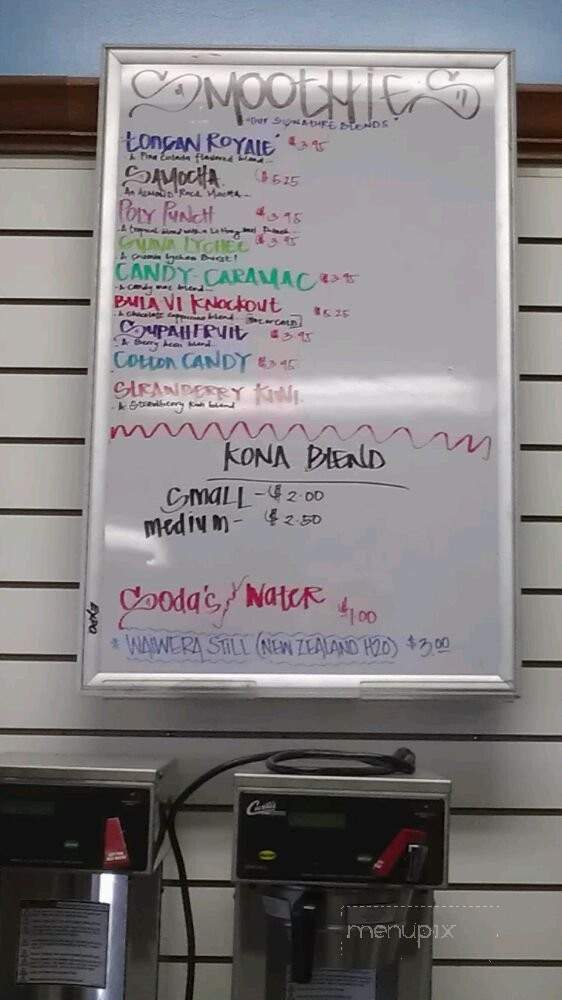 SMOOTHIES
"OUR SIGNATURE BLENDS"
LONGAN ROYALE $3.95
A Pina Colada flavored blend
SAMOCHA $5.25
AN ALMOND ROCA MOCHA
POLY PUNCH $3.95
A tropical blend with a Li Hing Mui Punch
GUAVA LYCHEE $3.95
A Guava Lychee Burst!
CANDY-CARAMAC $3.95
A Candy mac blend
BULA VI KNOCKOUT $5.25
A chocolate cappuccino blend
SUPAHFRUIT $3.95
A Berry blend
COTTON CANDY $3.95
STRAWBERRY KIWI
A Strawberry Kiwi blend
KONA BLEND
SMALL - $2.00
medium - $2.50
Soda's/Water $1.00
* WAIWERA STILL (NEW ZEALAND H2O) $3.00
EXPO
Curtis
menupix